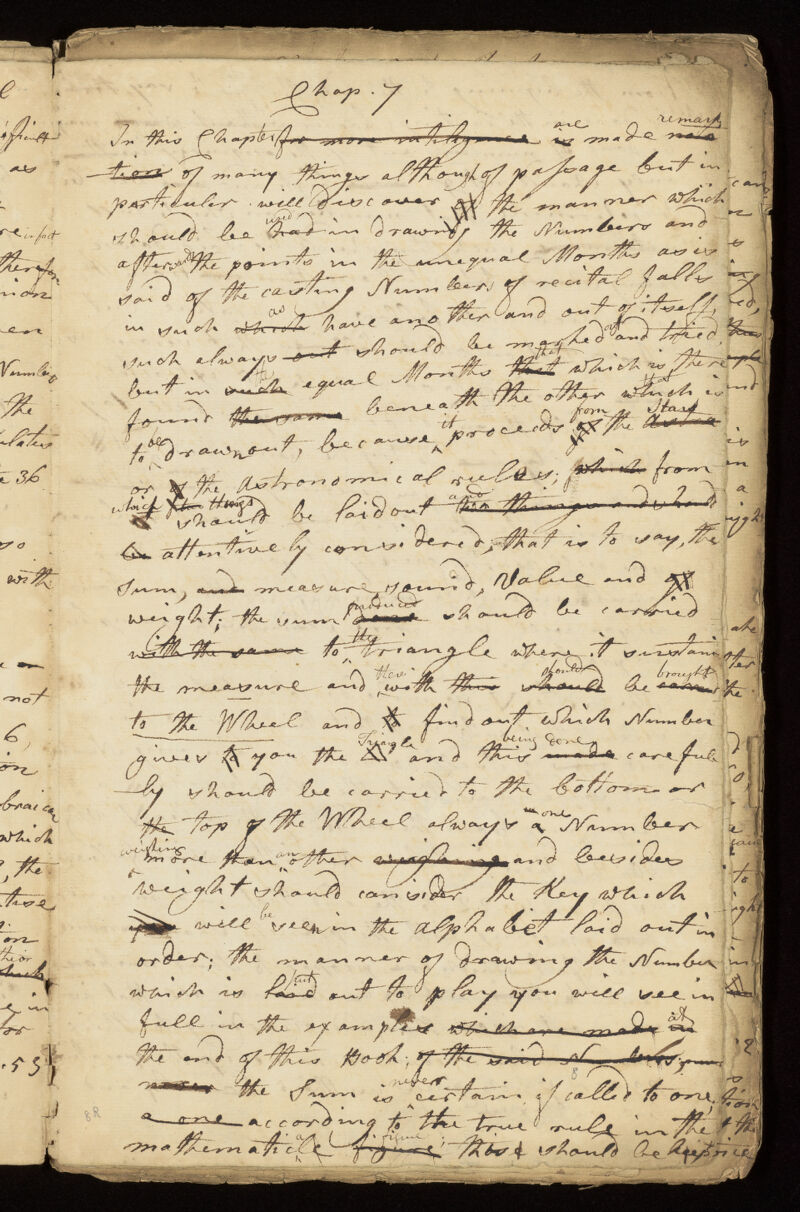 Chap. 7
In this Chapter for more intiligence is are made nota remark
tion of many things although of passage but in
particular will discover the manner which
should be had used in drawing the Numbers and
afterwards the points in the unequal Months as is
said of the casting Numbers of recital falls
in such which as have another and out of itself,
such always out should be marked and tried,
but in such the equal Months that that which is there
found the same beneath the other which is
to be drawn out, because it proceeds from the Astra Stars
or of the Astronomical rules; which from
which the things should be laid out and the things and should
be attentively considered; that is to say, the
Sum, and measure, sound, Value and
weight; the sum produced should be carried
with the same to the triangle where it sustain
the measure and then with this should should be brought
to the Wheel and to find out which Number
gives to you the Triangle and this made being done careful
ly should be carried to the bottom or
the top of the Wheel always a one Number
weighing more than an other weighing and besides
weight should consider the Key which
you will be seen in the alphabet laid out in
order; the manner of drawing the Number
which is laid out to play you will see in
full in the examples which are made in at
the end of this Book; of the said Numbers
never the Sum is never certain if called to one,
a one according to the true rule in the
mathematical figure figure; this should be
difficult
as
in fact
therefore
nion
en
Number
the
36
so
with
not
6,
on
braical
which
, the
on
their
which
e in
for
.53
8R